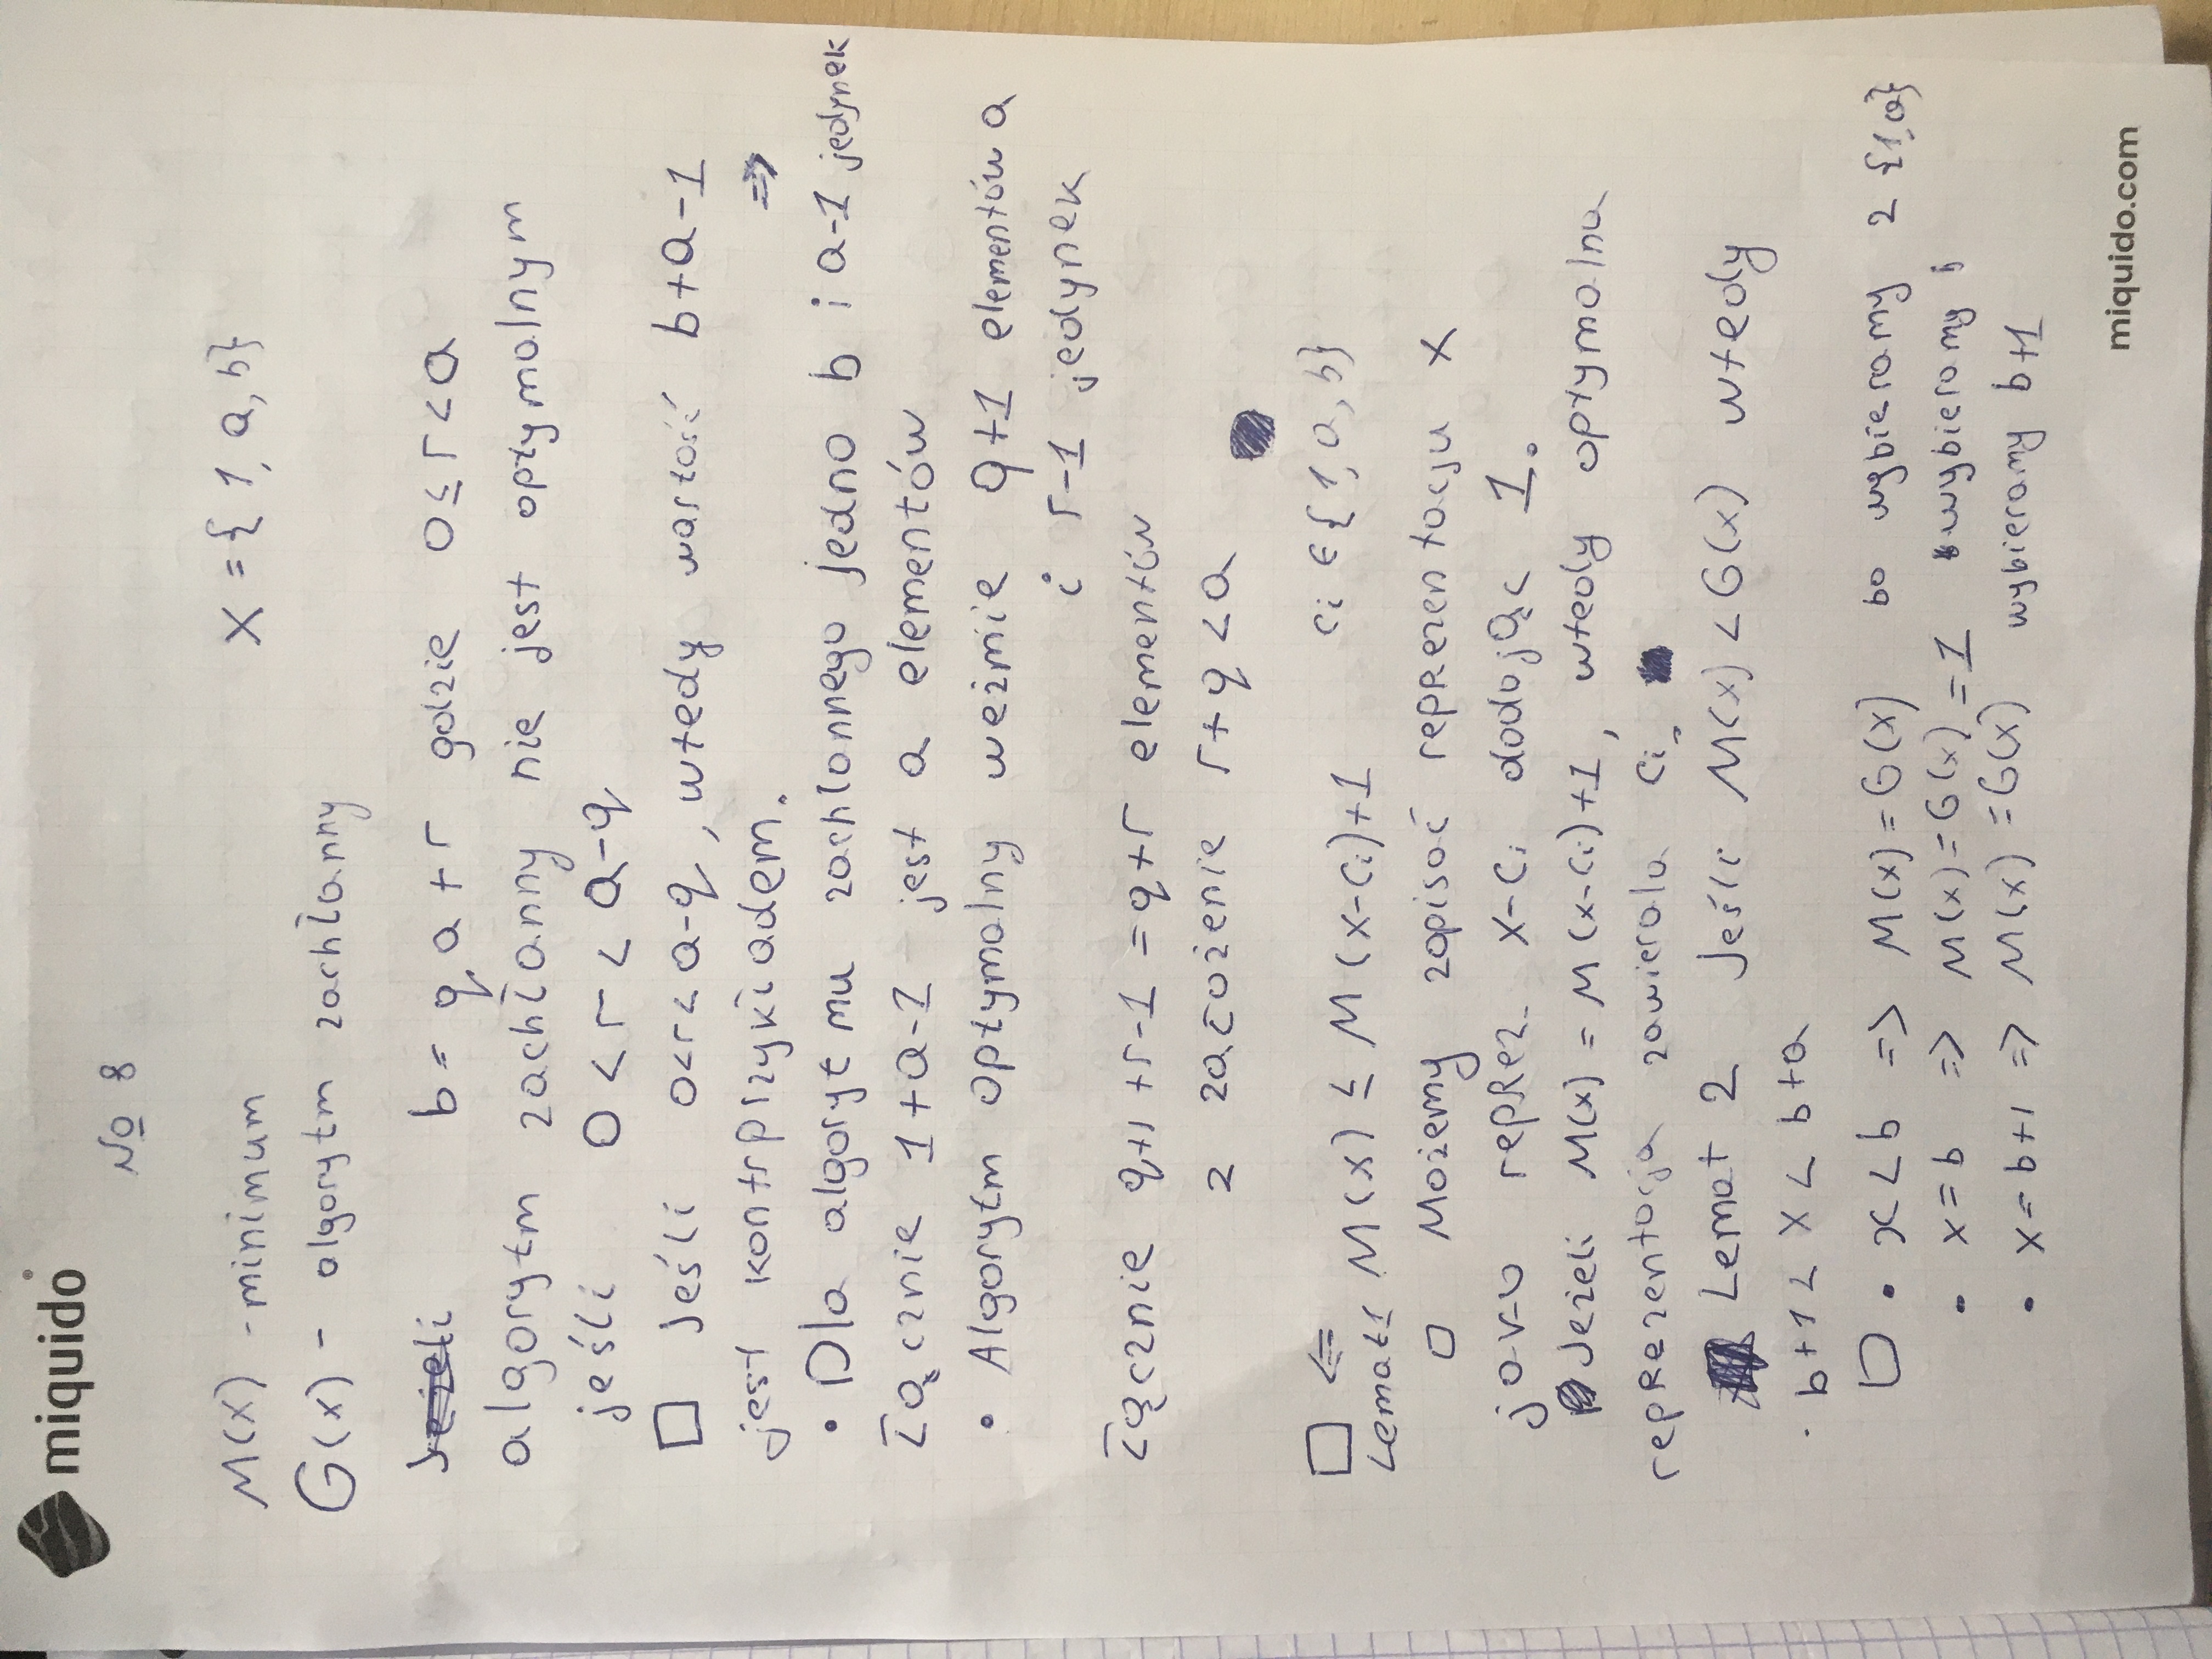 miquido
№ 8
M(X) - minimum X = { 1, a, b}
G(x) - algorytm zachłanny
Jeżeli b = q a + r gdzie 0 ≤ r < a
algorytm zachłanny nie jest optymalnym
jeśli 0 < r < a-q
□ Jeśli 0<r<a-q, wtedy wartość b+a-1
jest kontrprzykładem. ⇒
• Dla algorytmu zachlonnego jedno b i a-1 jedynek
Łącznie 1+a-1 jest a elementów
• Algorytm optymalny weźmie q+1 elementów a
i r-1 jedynek
Łącznie q+1+r-1 = q+r elementów
z założenie r+q < a
□ ⇐ ci ∈ { 1, a, b}
Lemat1 M(x) ≤ M(x-ci)+1
□ Możemy zapisać reprezentacju x
jako reprez. x-ci dodając 1.
Jeżeli M(x) = M(x-ci)+1, wtedy optymalna
reprezentacja zawierala ci.
Lemat 2 Jeśli M(x) < G(x) wtedy
· b+1 < x < b+a
□ • x < b => M(x) = G(x) bo wybieramy z {1,a}
• x = b => M(x) = G(x) = 1 wybieramy b
• x = b+1 => M(x) = G(x) wybieramy b+1
miquido.com